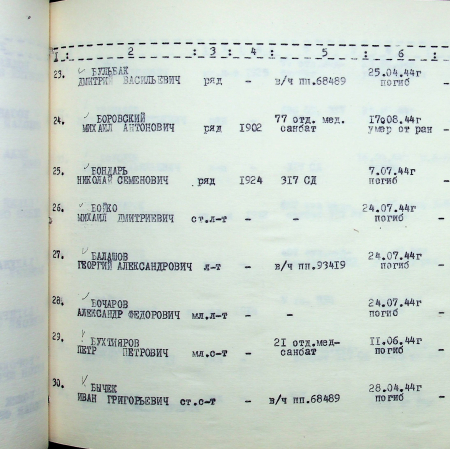 1 : 2 : 3 : 4 : 5 : 6 :
23. БУЛЬБАК 25.04.44г
ДМИТРИЙ ВАСИЛЬЕВИЧ ряд - в/ч пп.68489 погиб -
24. БОРОВСКИЙ 77 отд. мед. 17.08.44г
МИХАИЛ АНТОНОВИЧ ряд 1902 санбат умер от ран -
25. БОНДАРЬ 7.07.44г
НИКОЛАЙ СЕМЕНОВИЧ ряд 1924 317 СД погиб -
26. БОЙКО 24.07.44г
МИХАИЛ ДМИТРИЕВИЧ ст.л-т - - погиб -
27. БАЛАШОВ 24.07.44г
ГЕОРГИЙ АЛЕКСАНДРОВИЧ л-т - в/ч пп.93419 погиб -
28. БОЧАРОВ 24.07.44г
АЛЕКСАНДР ФЕДОРОВИЧ мл.л-т - - погиб -
29. БУХТИЯРОВ 21 отд.мед- 11.06.44г
ПЕТР ПЕТРОВИЧ мл.с-т - санбат погиб -
30. БЫЧЕК 28.04.44г
ИВАН ГРИГОРЬЕВИЧ ст.с-т - в/ч пп.68489 погиб -